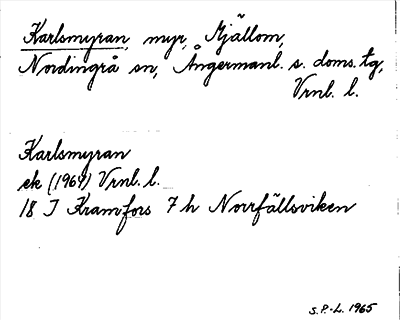 Karlsmyran, myr, Mjällom,
Nordingrå sn, Ångermanl. s. doms. tg,
Vrnl. l.
Karlsmyran
ek (1964) Vrnl. l.
18 I Kramfors 7 h Norrfällsviken
S.P.-L. 1965